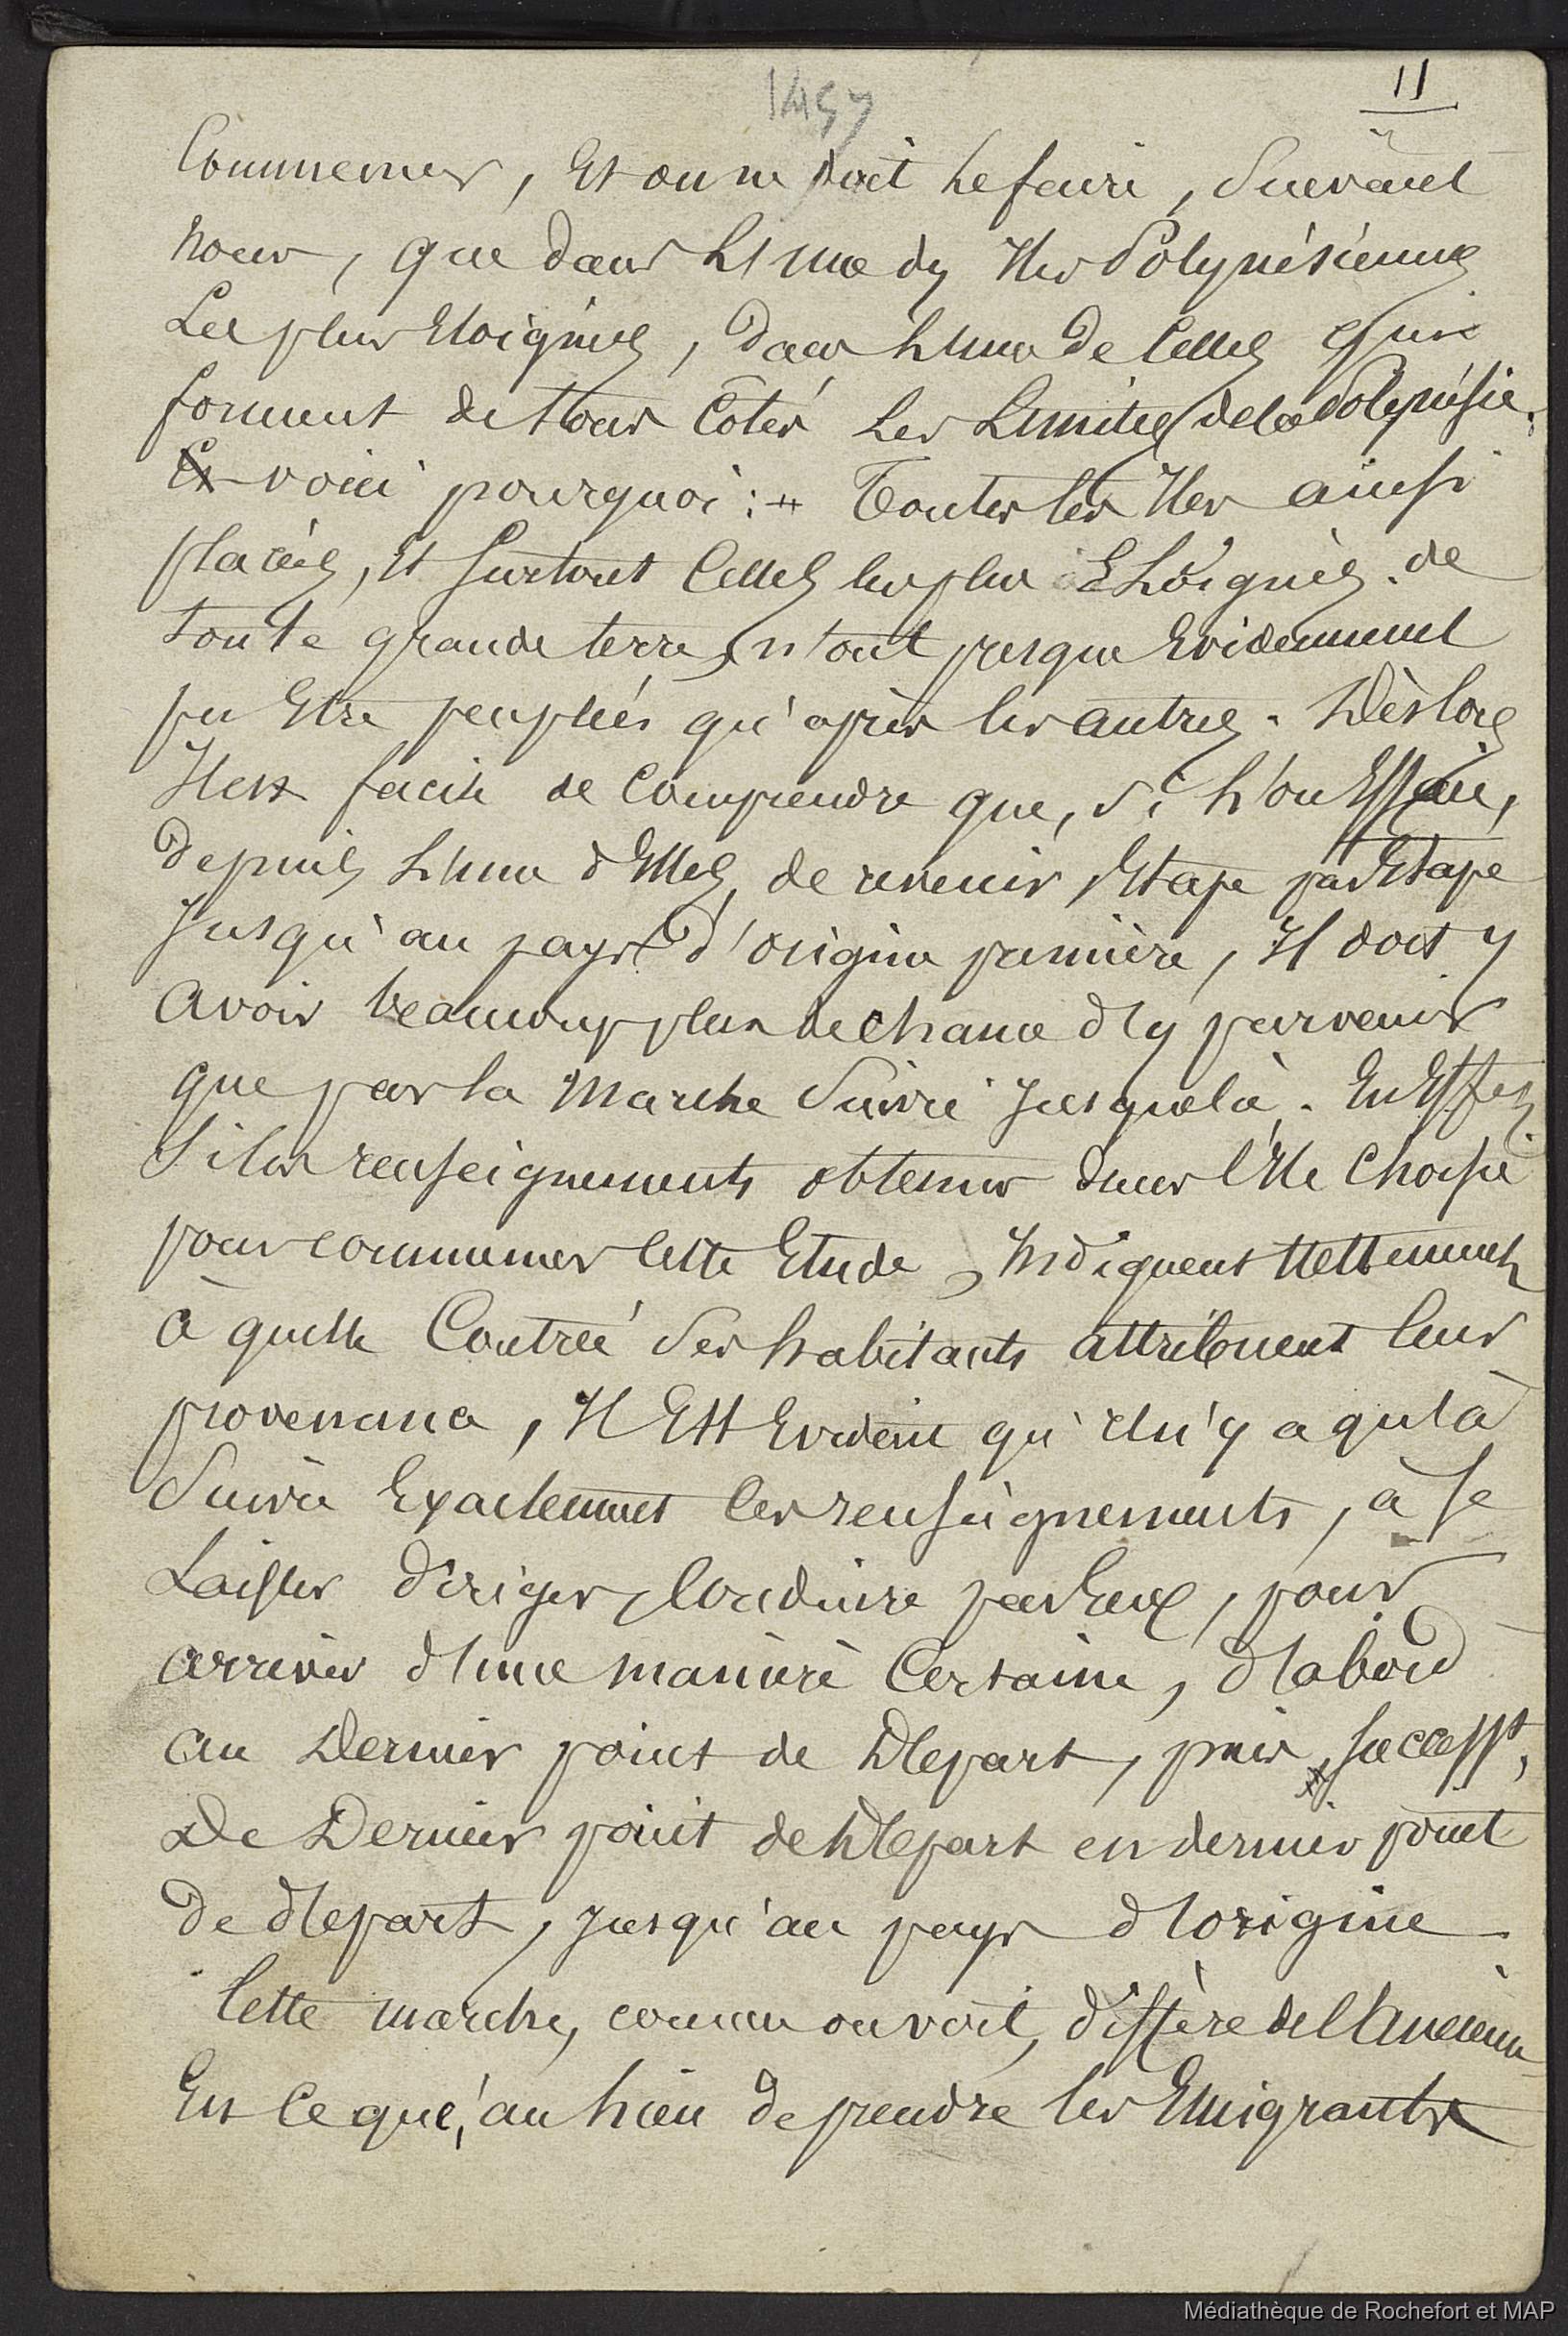 1457
11
Commencer, Et on ne doit le faire, Suivant
nous, que dans L'une des Iles Polynésiennes
Les plus Eloignées, dans L'une de Celles qui
forment de tous Côtés Les Limites de la Polynésie.
Et voici pourquoi : + Toutes les Iles ainsi
placées, Et Surtout Celles les plus Eloignées de
toute grande terre, n'ont presque Evidemment
pu Etre peuplées qu'après les autres. Dès lors
Il est facile de Comprendre que, si l'on Essaie,
depuis L'une d'Elles, de revenir, Etape par Etape
Jusqu'au pays d'origine première, Il doit y
avoir beaucoup plus de chance d'y parvenir
que par la Marche Suivie Jusque là. En Effet,
Si les renseignements obtenus dans l'Ile Choisie
pour commencer Cette Etude, Indiquent Nettement
à quelle Contrée Ses habitants attribuent leur
provenance, Il Est Evident qu'il n'y a qu'à
Suivre Exactement les renseignements, à se
Laisser diriger, Conduire par Eux, pour
arriver d'une manière Certaine, d'abord
au Dernier point de Départ, puis, successt,
De Dernier point de Départ en dernier point
De départ, Jusqu'au pays d'origine.
Cette marche, comme on voit, diffère de l'ancienne
En Ce que, au lieu de prendre les Emigrants
Médiathèque de Rochefort et MAP